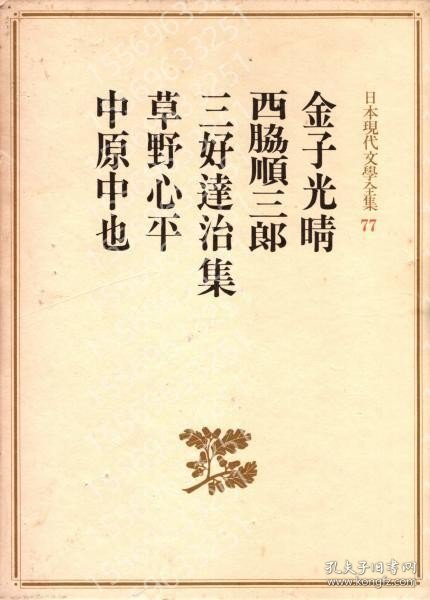 日本現代文學全集 77
金子光晴
西脇順三郎
三好達治集
草野心平
中原中也
15569633251
孔夫子旧书网